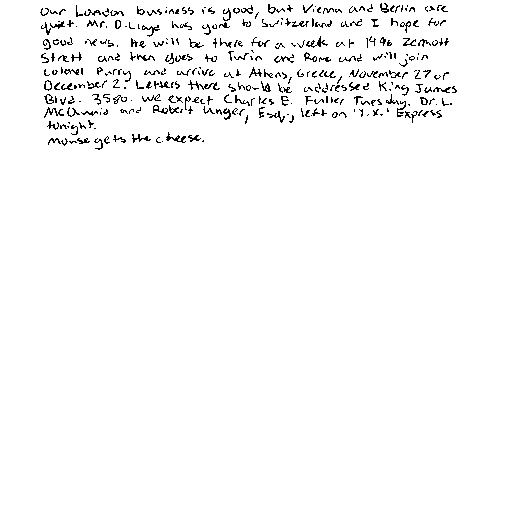 Our London business is good, but Vienna and Berlin are
quiet. Mr. D. Lloyd has gone to Switzerland and I hope for
good news. He will be there for a week at 1496 Zermott
Strett and then goes to Turin and Rome and will join
Colonel Parry and arrive at Athens, Greece, November 27 or
December 2. Letters there should be addressed King James
Blvd. 3580. We expect Charles E. Fuller Tuesday. Dr. L.
McQuaid and Robert Unger, Esq., left on 'Y.X.' Express
tonight.
Mouse gets the cheese.